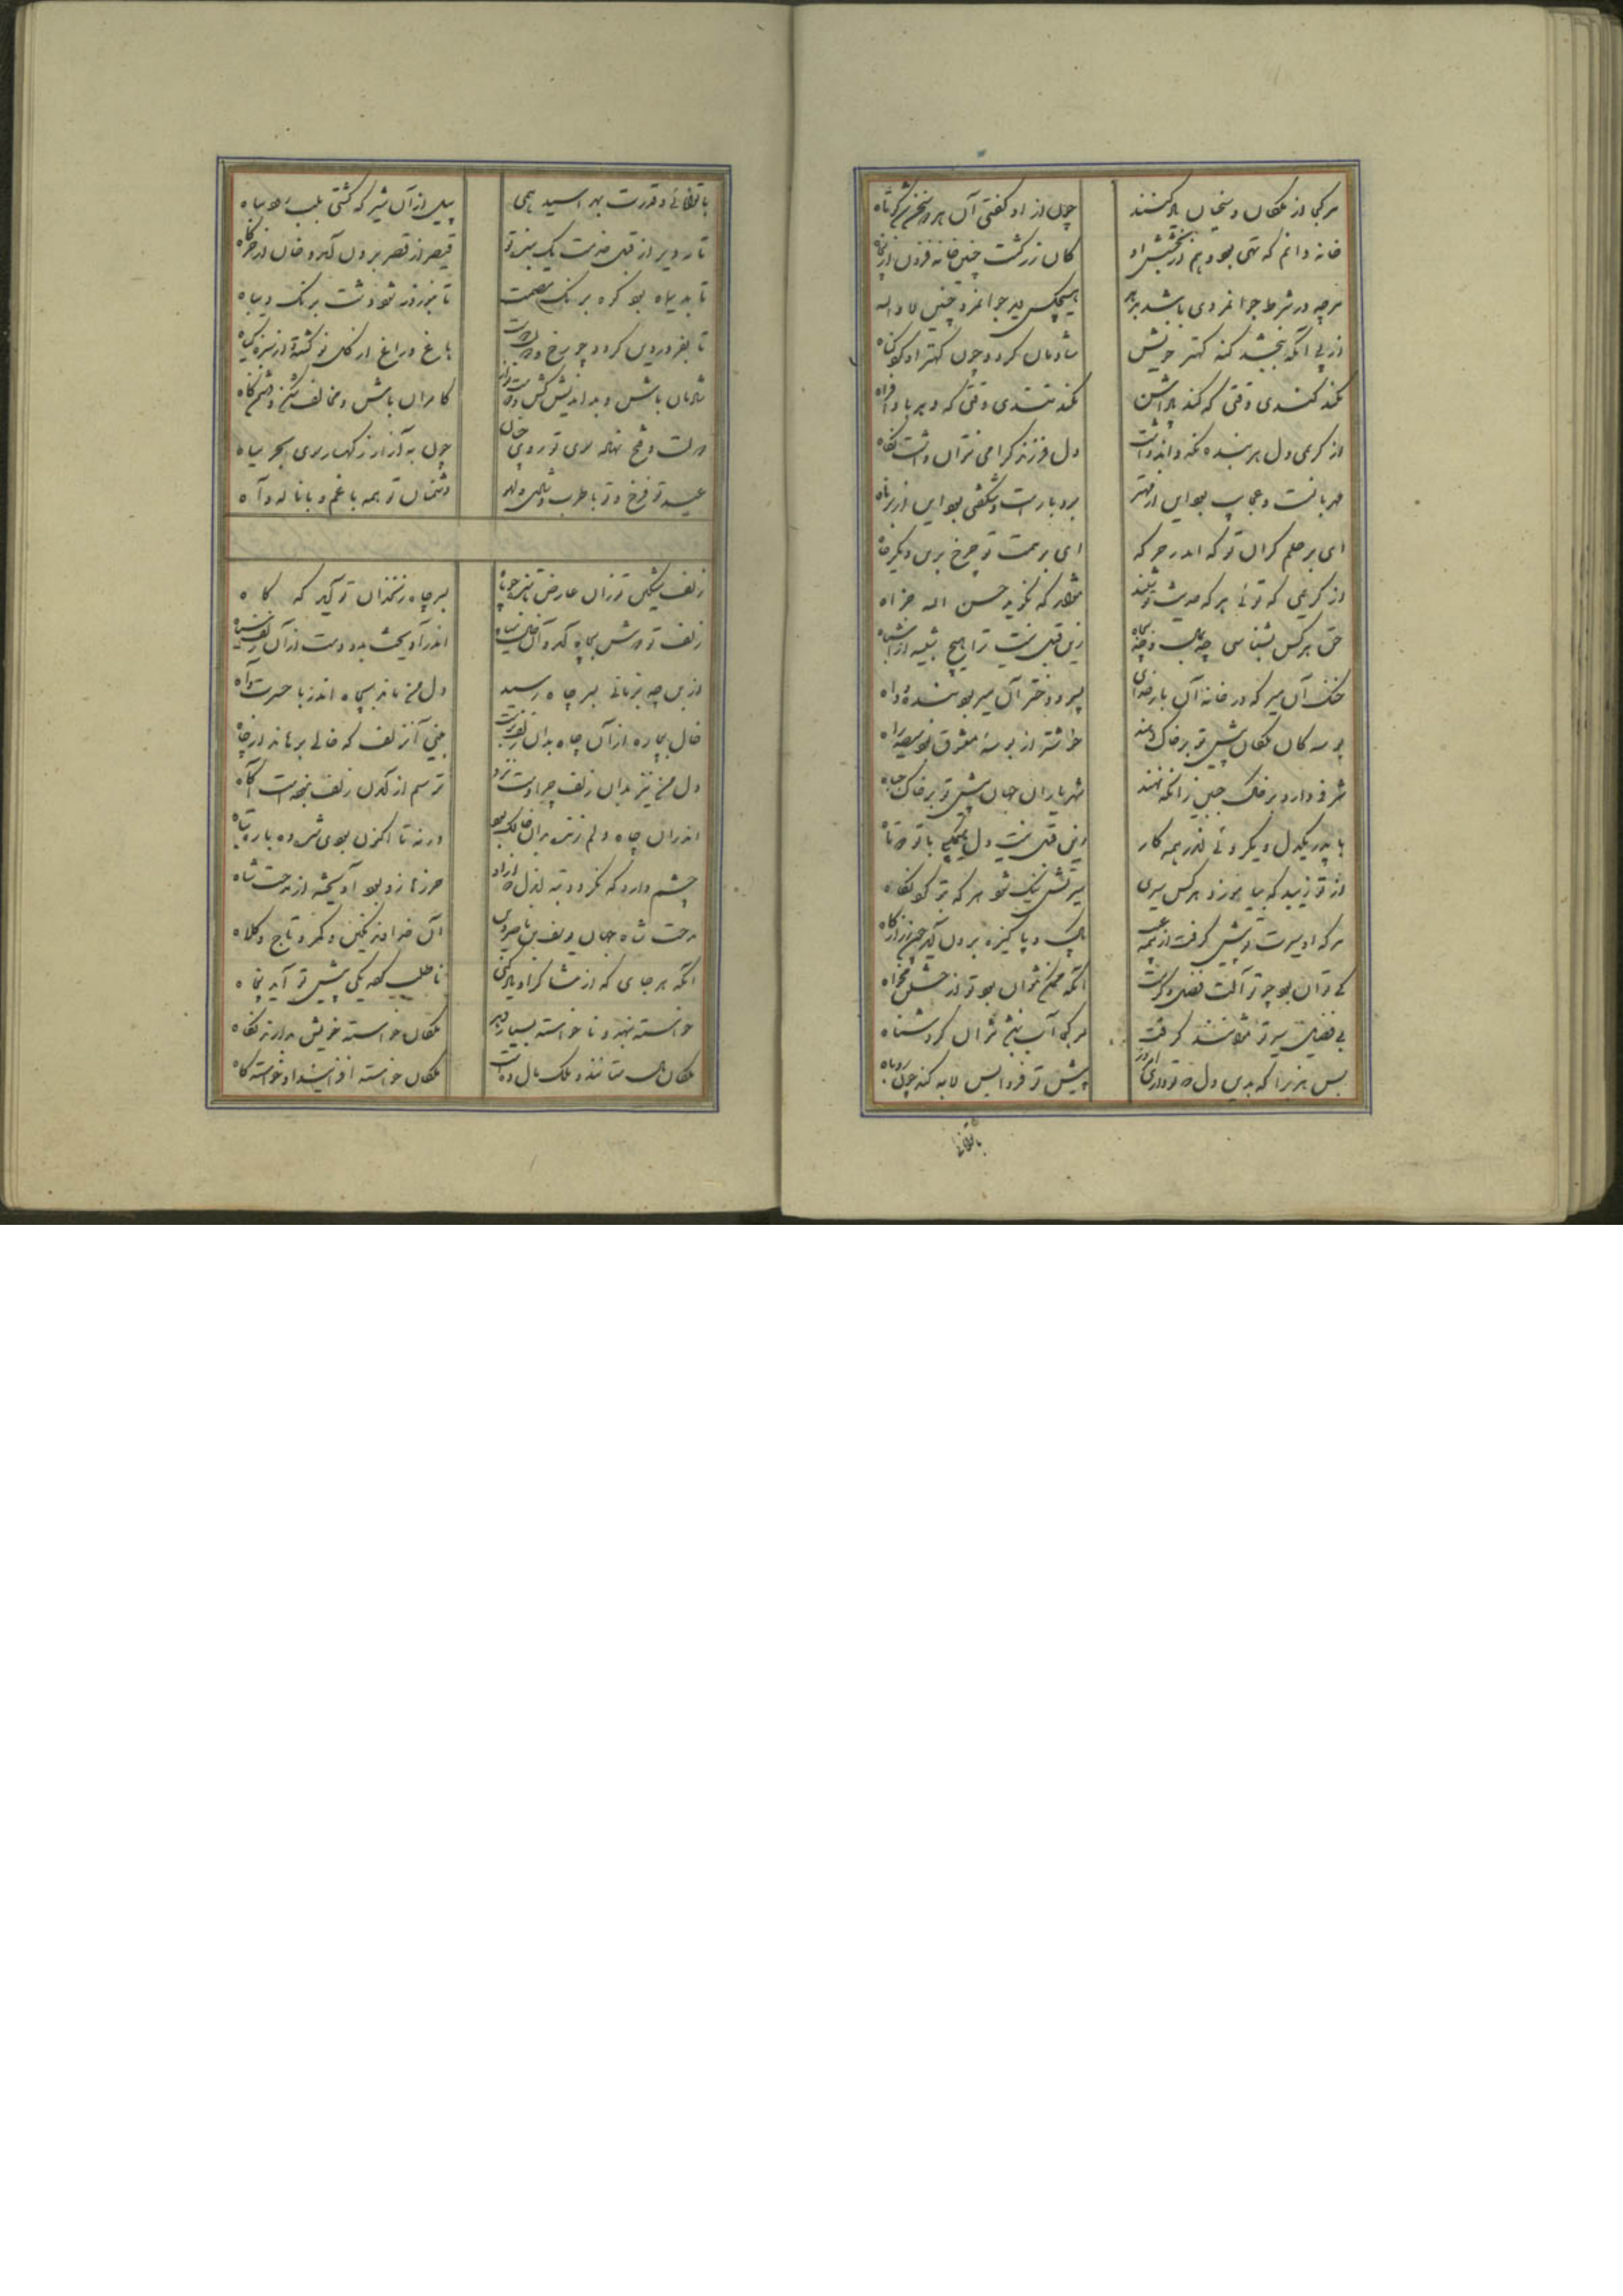 هر کجا از ملکان و سخنان یاد کنند
چون از او گفتی آن هر دو سخن شد کوتاه
خانه دانم که تهی بود هم از بخشش او
کان زر گشت چنین خانه
هر چه در شرط جوانمردی باشد
هیچکس دید جوانمرد چنین
از پی آنکه ببخشد گنه کهتر خویش
شادمان گردد چون کهتر او کرد گناه
نکند کندی وقتی که کند
نکند تندی وقتی که دهد
از کریمی دل هر بنده نگه داند داشت
دل فرزند گرامی نتوان داشت نگاه
مهربانست و عجایب بود این از مهتر
بردبارست و شگفتی بود این از برناه
ای بر حلم گران تو که اندر خور که
ای بر همت تو چرخ برین دیگر جاه
از کریمی که توئی هر که حدیث تو شنید
نگرید حسن اله
حق هر کس بشناسی
زین قبل نیست ترا هیچ شبیه از اشباه
خنک آن میر که در خانه آن بار خدای
پسر و دختر آن میر بود بنده و داه
بوسه کان ملکان پیش تو بر خاک دهند
خوشتر از بوسه معشوق بود سیصد راه
شرف دارد بر خاک جبین زانکه نهند
شهریاران جهان پیش تو بر خاک جباه
با پدر یکدل و یکروئی اندر همه کار
زین قبل نیست دل هیچکسی با تو دو تاه
از تو زیبد که بیاموزد هر کس سیری
سیرتش نیک شود هر که به تو کرد نگاه
هر که او سیرت تو پیش گرفت از همه عیب
پاک و پاکیزه برون آید چون زر از گاه
که توان بود چو تو آلت فضل و کرمت
آنچه ممکن نتوان بود تو از خلق مخواه
بی فضایل سیر تو نتوانند گرفت
هر کجا آب نباشد نتوان کرد شناه
بس هنرا که بدین دل که تو داری
پیش تو فردا بس لابه کند چون روباه
بتوانی
با توانائی و قدرت بهراسید همی
پیل از آن شیر که کشتی بلب رود بیاه
تا نه دیر از قبل خدمت یک بنده تو
قیصر از قصر برون آید و خان از خرگاه
تا بدیماه بود کوه برنگ مصمت
تا بنوروز شود دشت برنگ دیباه
تا بفروردین گردد چو رخ دوست
باغ و راغ از گل نو گشته و از سبزه گیاه
شادمان باش و بداندیش کش و دوست نواز
کامران باش و مخالف شکن و دشمن کاه
دولت و فتح نهاده سوی تو روی چنان
چون به آزار ز کهسار سوی بحر میاه
عید تو فرخ و تو با طرب و شادی و لهو
دشمنان تو همه با غم و با ناله و آه
زلف مشکین تو زان عارض تابنده چو ماه
بسر چاه زنخدان تو آید گه گاه
زلف تو درشن بچاه آید و آن خال سیاه
اندر آویخت بدو دست از آن زلف سیاه
از بن چه بزمانی بسر چاه رسید
دل من ماند بچاه اندر با حسرت و آه
خال بیچاره از آن چاه بدان زلف برست
بینی آن زلف که خالی برهاند از چاه
دل من نیز بدان زلف چرا دست نزد
ترسم از آمدن زلف نبوده است آگاه
اندران چاه دلم زنده بدان خال بود
ورنه تا اکنون بودی شده یکباره تباه
چشم دارد که نگردد تبه آن دل کآزاد
حرزها زو بود آویخته از مدحت شاه
مدحت شاه جهان یوسف بن ناصر دین
آن خداوند نگین و کمر و تاج و کلاه
آنکه هر جای که از شاکر او یاد کنی
ناطلب کرده یکی پیش تو آید پنجاه
خواسته بنهد و ناخواسته بسیار دهد
ملکان خواسته خویش بدارند نگاه
ملکان ملک ستانند و ملک مال دهست
ملکان خواسته افزایند او خواسته کاه